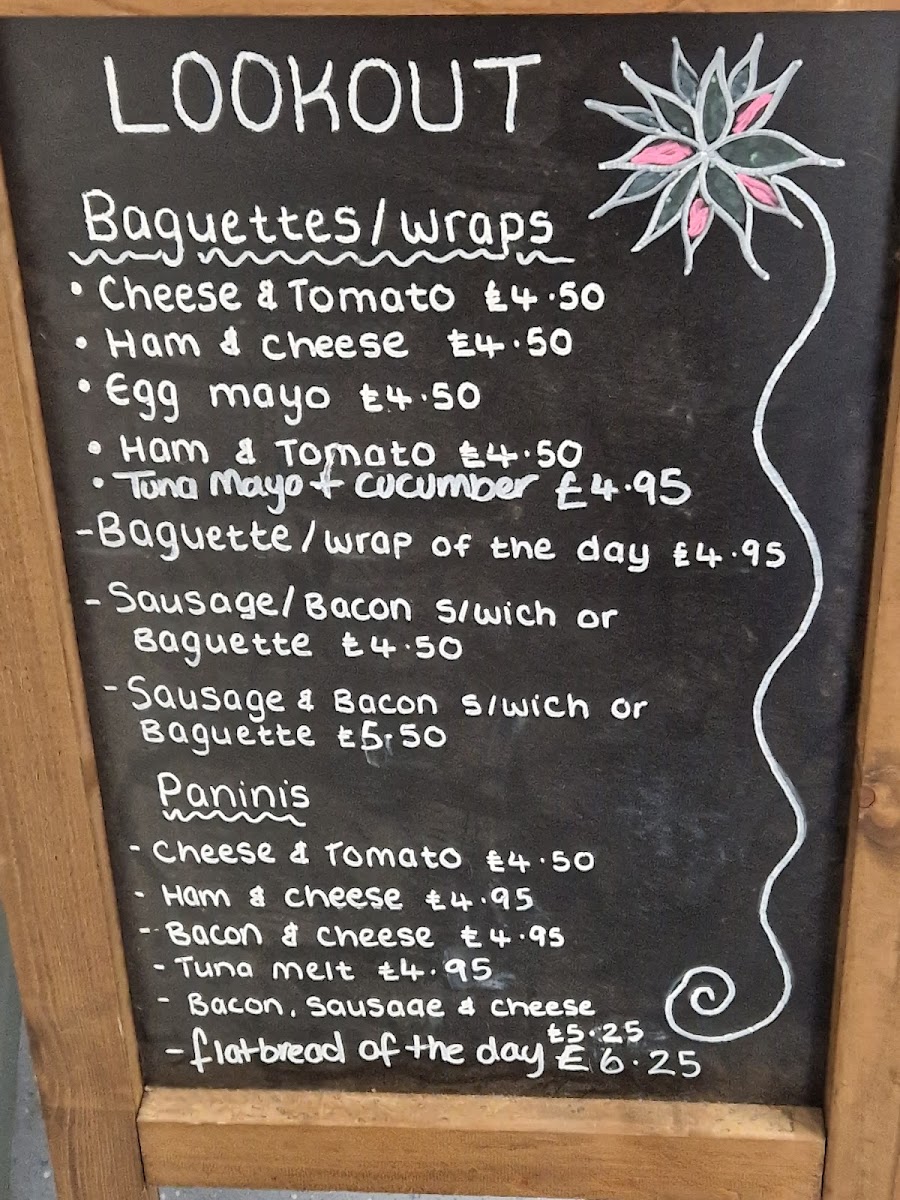 LOOKOUT
Baguettes/wraps
• Cheese & Tomato £4.50
• Ham & cheese £4.50
• Egg mayo £4.50
• Ham & Tomato £4.50
• Tuna Mayo + cucumber £4.95
- Baguette/wrap of the day £4.95
- Sausage/Bacon s/wich or
Baguette £4.50
- Sausage & Bacon s/wich or
Baguette £5.50
Paninis
- Cheese & Tomato £4.50
- Ham & cheese £4.95
- Bacon & cheese £4.95
- Tuna melt £4.95
- Bacon, sausage & cheese
£5.25
- flatbread of the day £6.25